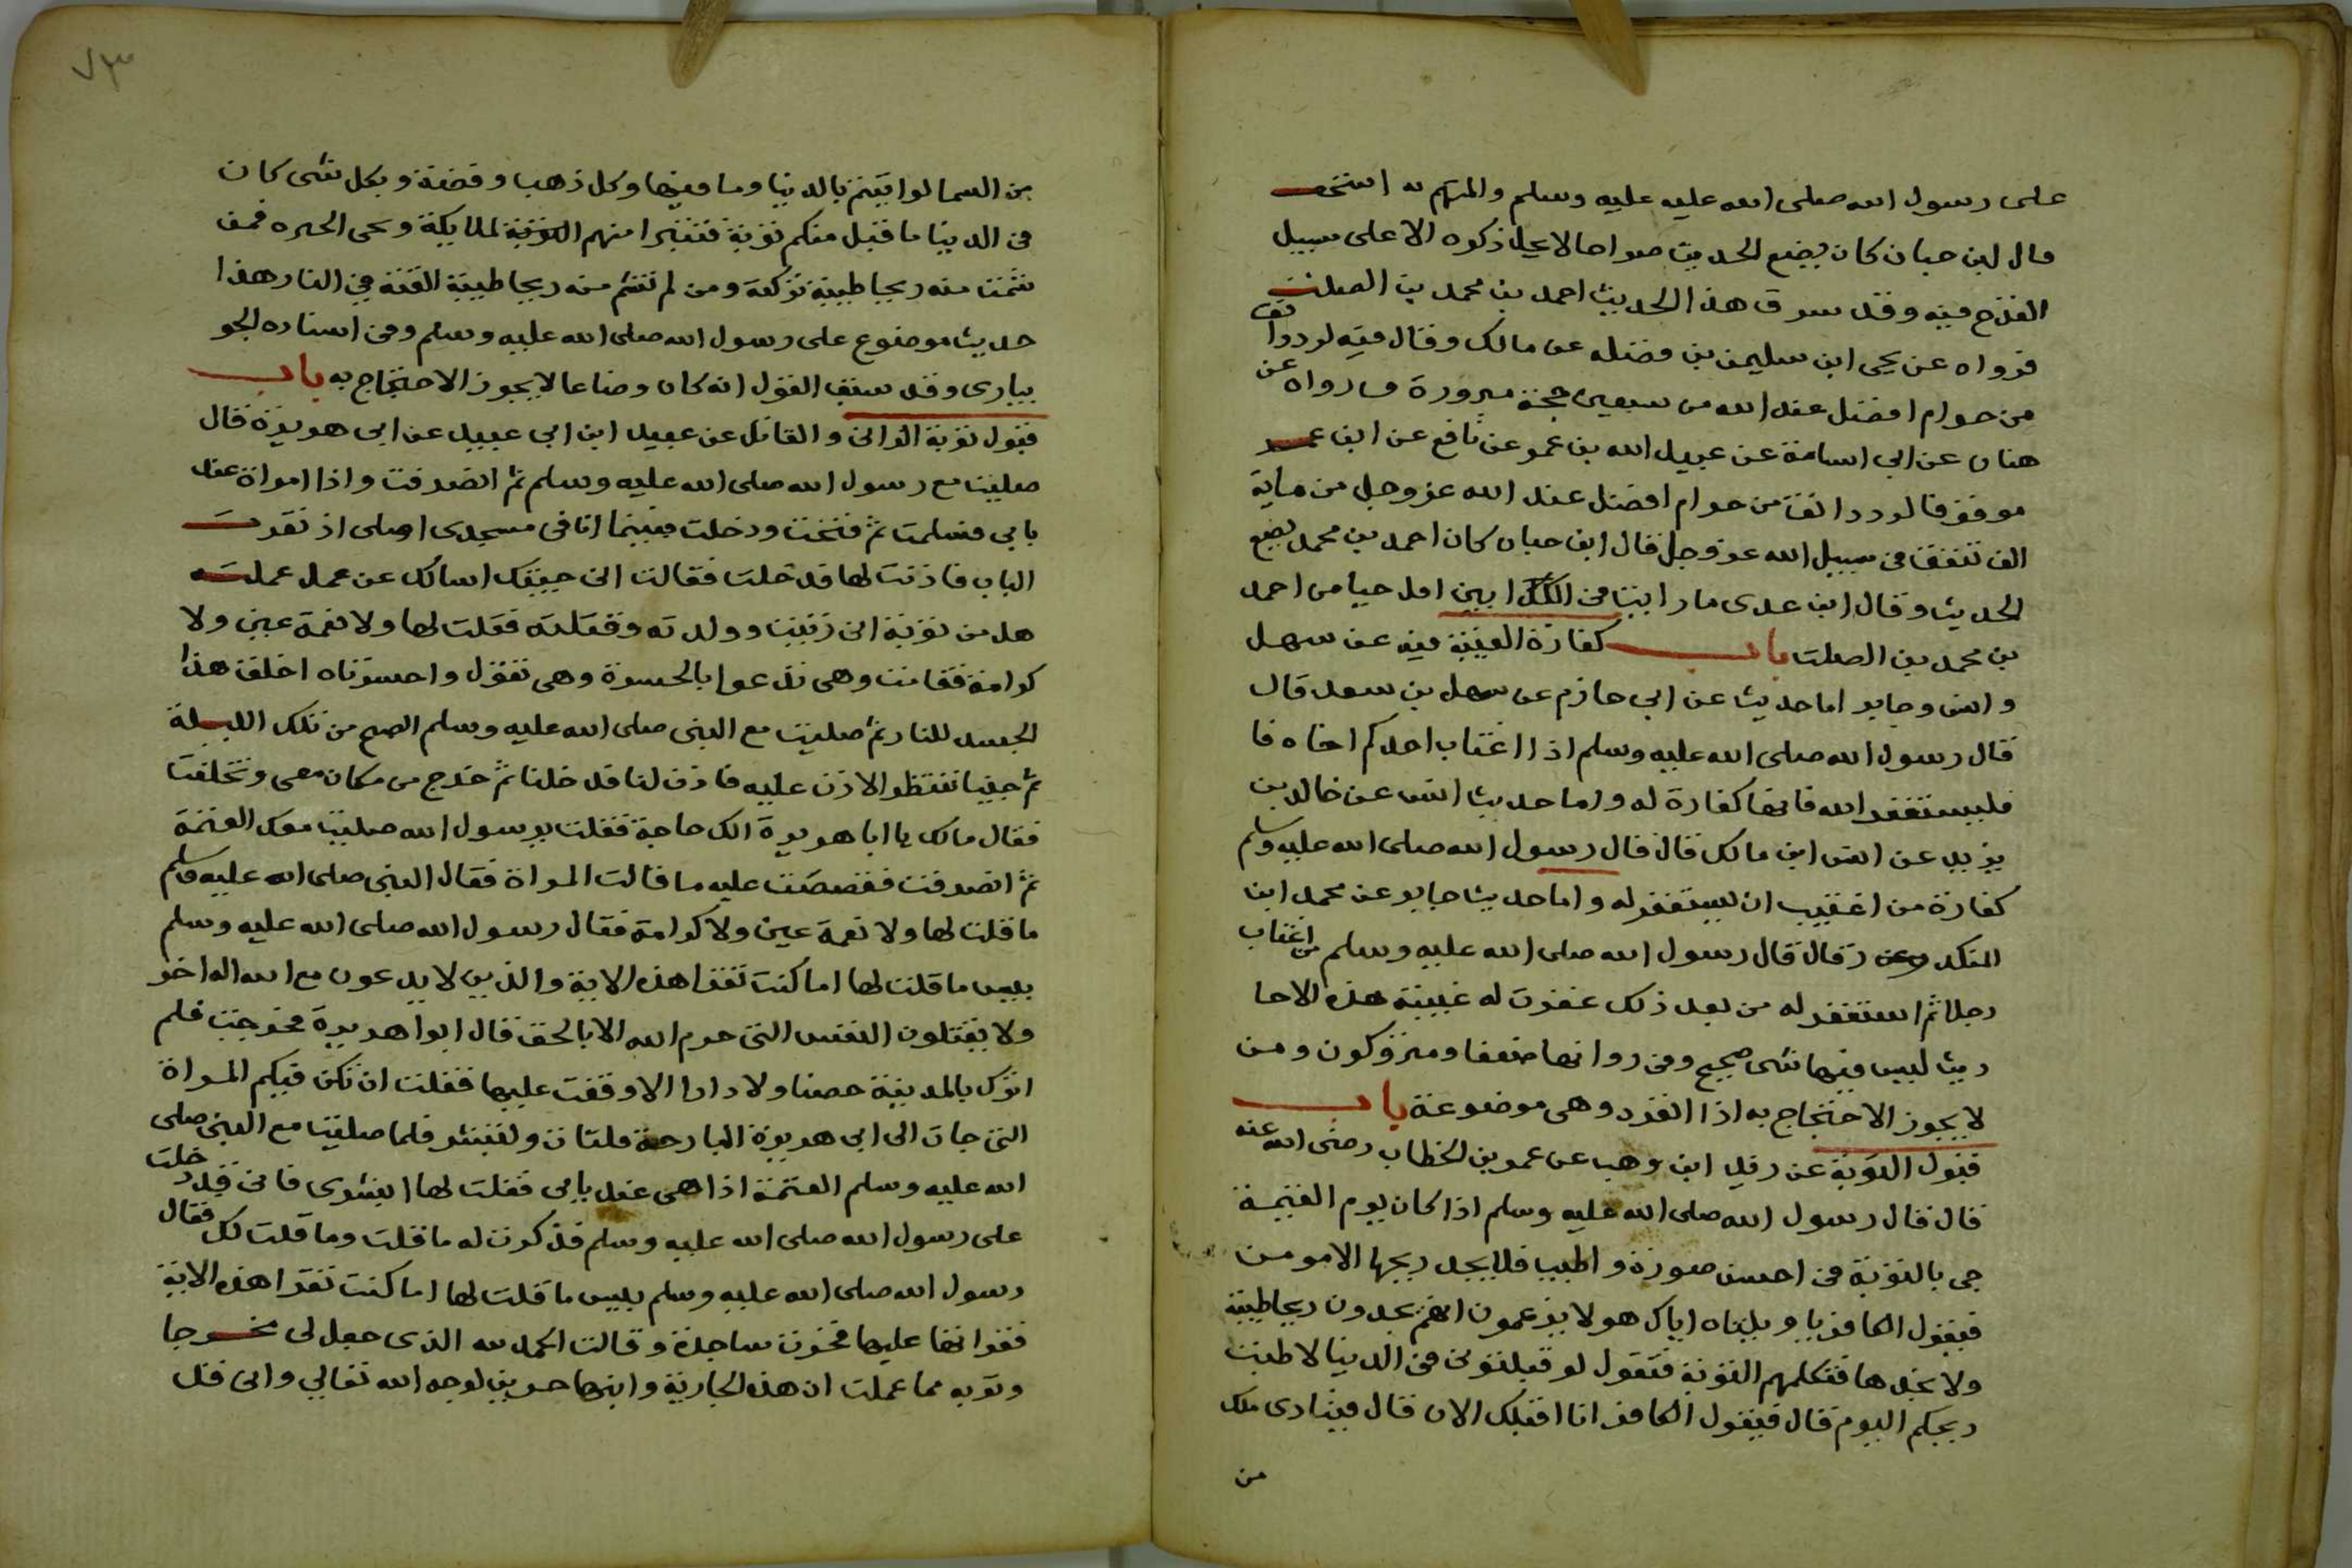 على رسول الله صلى الله عليه عليه وسلم والمتهم به اسحق
قال ابن حبان كان يضع الحديث صراحا لا يحل ذكره الا على سبيل
القدح فيه وقد سرق هذا الحديث احمد بن محمد بن الصلت
فرواه عن يحي ابن سليمن بن فضله عن مالك وقال فيه لرد دانق
من حرام افضل عند الله من سبعين حجة مبرورة ورواه عن
هناد عن ابي اسامة عن عبيد الله بن عمر عن نافع عن ابن عمر
موقوفا لرد دانق من حرام افضل عند الله عز وجل من ماية
الف تنفق في سبيل الله عز وجل قال ابن حبان كان احمد بن محمد يضع
الحديث وقال ابن عدي ما رايت في الكذابين اقل حيا من احمد
بن محمد بن الصلت باب كفارة الغيبة فيه عن سهل
وانس وجابر اما حديث عن ابي حازم عن سهل بن سعد قال
قال رسول الله صلى الله عليه وسلم اذا اغتاب احدكم اخاه فا
فليستغفر الله فانها كفارة له واما حديث انس عن خالد بن
يزيد عن انس ابن مالك قال قال رسول الله صلى الله عليه وسلم
كفارة من اغتيب ان يستغفر له واما حديث جابر عن محمد ابن
المنكدر قال قال رسول الله صلى الله عليه وسلم من اغتاب
رجلا ثم استغفر له من بعد ذلك غفرت له غيبته هذه الاحا
ديث ليس فيها شي صحيح وفي رواتها ضعفا ومتروكون ومن
لا يجوز الاحتجاج به اذا انفرد وهي موضوعة باب
قبول التوبة عن زيد ابن وهب عن عمر بن الخطاب رضى الله عنه
قال قال رسول الله صلى الله عليه وسلم اذا كان يوم القيمة
جي بالتوبة في احسن صورة واطيب فلا يجد ريحها الا مومن
فيقول الكافر يا ويلتاه اياك هولا يزعمون انهم يجدون ريحا طيبة
ولا نجدها فتكلمهم التوبة فتقول لو قبلتوني في الدنيا لاطبت
ريحكم اليوم قال فيقول الكافر انا اقبلك الان قال فينادى ملك
من
٧٣
من السما لو اتيتم بالدنيا وما فيها وكل ذهب وفضة وبكل شي كان
في الدنيا ما قبل منكم توبة فتتبرا منهم التوبة الملايكة وتجي الخزنة فمن
شمت منه ريحا طيبة تركته ومن لم تشم منه ريحا طيبة القته في النار هذا
حديث موضوع على رسول الله صلى الله عليه وسلم وفي اسناده الجو
يباري وقد سبق القول انه كان وضاعا لا يجوز الاحتجاج به باب
قبول توبة الزاني والقاتل عن عبيد ابن ابي عبيد عن ابي هريرة قال
صليت مع رسول الله صلى الله عليه وسلم ثم انصرفت واذا امراة عند
بابي فسلمت ثم فتحت ودخلت فبينما انا في مسجدي اصلى اذ نقرت
الباب فاذنت لها فدخلت فقالت اني جيتك اسالك عن عمل عملت
هل من توبة اني زنيت وولدته وقتلته فقلت لها ولا نعمة عين ولا
كرامة فقامت وهي تدعوا بالحسرة وهي تقول واحسرتاه اخلق هذا
الجسد للنار ثم صليت مع النبي صلى الله عليه وسلم الصبح من تلك الليلة
ثم جلسنا ننتظر الاذن عليه فاذن لنا فدخلنا ثم خرج من مكان معي وتخلفت
فقال مالك يا ابا هريرة الك حاجة فقلت يرسول الله صليت معك العتمة
ثم انصرفت فقصصت عليه ما قالت المراة فقال النبي صلى الله عليه وسلم
ما قلت لها ولا نعمة عين ولا كرامة فقال رسول الله صلى الله عليه وسلم
بيس ما قلت لها اما كنت تقرا هذه الاية والذين لا يدعون مع الله الها اخر
ولا يقتلون النفس التي حرم الله الا بالحق قال ابوا هريرة فخرجت فلم
اترك بالمدينة حصنا ولا دارا الا وقفت عليها فقلت ان تكن فيكم المراة
التي جات الى ابي هريرة البارحة فلتات ولتبشر فلما صليت مع النبي صلى
الله عليه وسلم العتمة اذا هي عند بابي فقلت لها ابشري فاني قد دخلت
على رسول الله صلى الله عليه وسلم فذكرت له ما قلت وما قلت لك فقال
رسول الله صلى الله عليه وسلم بيس ما قلت لها اما كنت تقرا هذه الاية
فقراتها عليها فخرت ساجدة وقالت الحمد لله الذي جعل لى مخرجا
وتوبه مما عملت ان هذه الجارية وابنها حرين لوجه الله تعالي واني قد